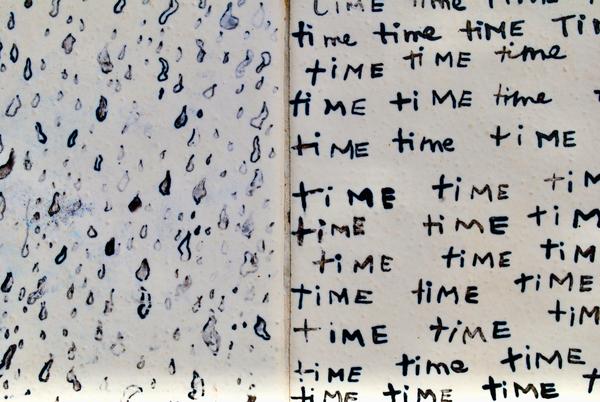 time time time
time time tiME Ti
tiME tiME time
tiME tiME time
tiME time tiME
tiME tiME tiM
tiME tiME tiM
tiME time tiM
tiME tiME tiME
tiM
tiME tiME
tiME time tiME
tiME tiME tiME t